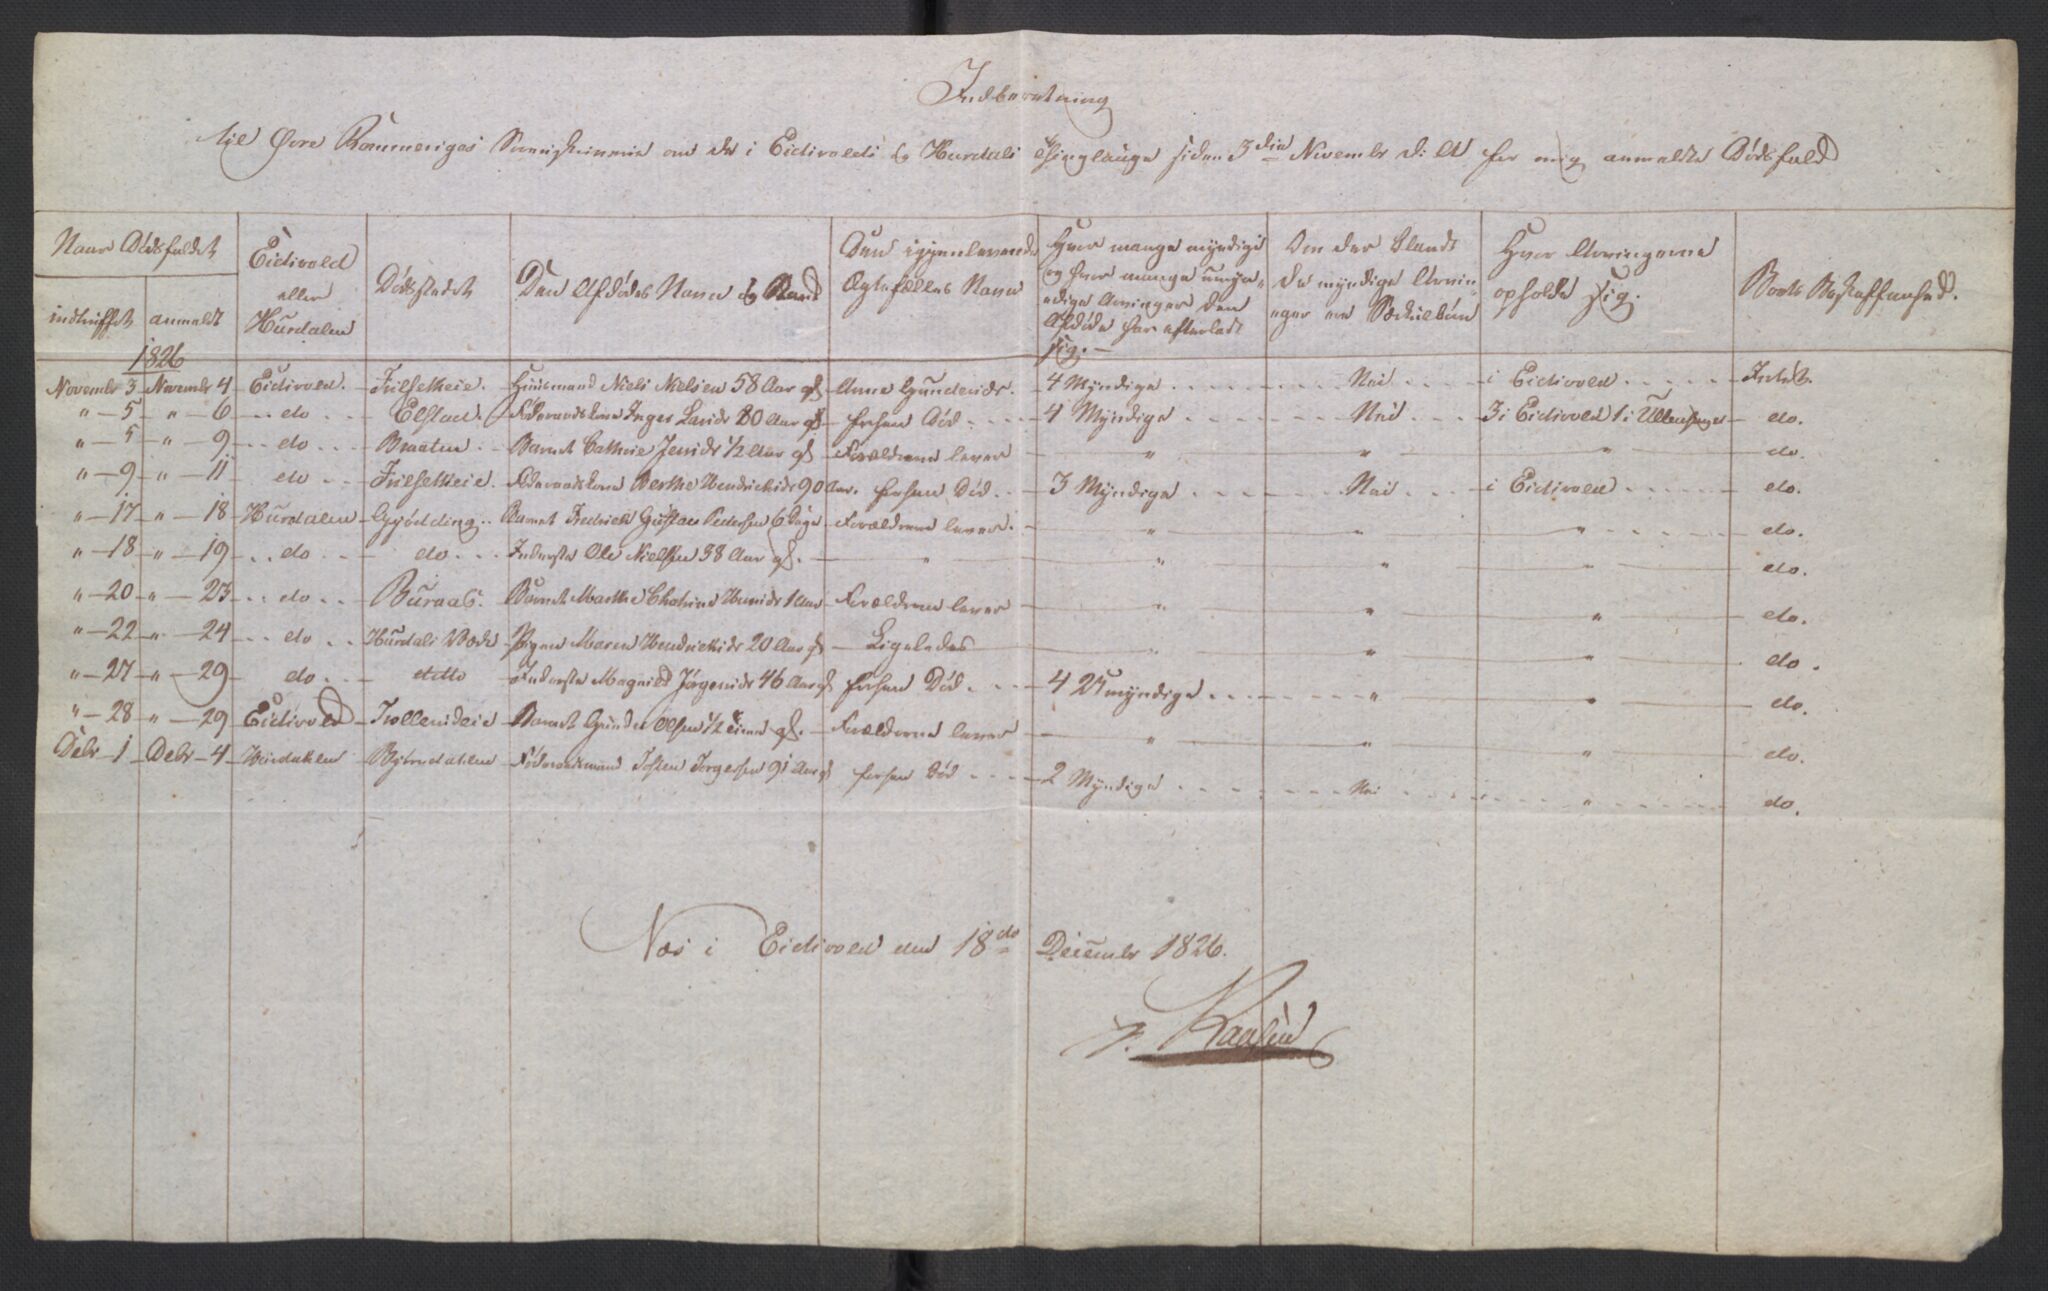 Indberetning
til Øvre Rommeriges Sorenskriverie om de i Eidsvolds og Hurdals Thinglauge siden 3die Novembr d: A for mig anmeldte Dødsfald
Naar Dødsfaldet
indtruffet anmeldt
Eidsvold eller Hurdalen
Dødsstedet
Den Afdødes Navn og Stand
Den igjenlevende Ægtefælles Navn
Hvor mange myndige og hvor mange umyndige Arvinger den Afdøde har efterladt sig.
Om der blandt de myndige Arvinger ere Særkulbørn
Hvor Arvingerne opholde sig.
Boets Beskaffenhed.
1826
Novembr 3 Novembr 4 Eidsvold. Huusmand Niels Nielsen 58 Aar gl Anne Gundersdr. 4 Myndige Nei i Eidsvold Intet.
" 5 " 6 do Elstad. Føderaadskone Inger Larsdr 80 Aar gl hendes Død 4 Myndige Nei 3 i Eidsvold 1 i Ullensager do.
" 5 " 9 do Braaten Barnet Cathrie Jensdr 1/2 Aar gl Forældrene lever " " " do.
" 9 " 11 do Føderaadskone Berthe Hendrichsdr 90 Aar. 3 Myndige Nei i Eidsvold do.
" 17 " 18 Hurdalen Gjødding Barnet Fredrich Gustav Pedersen 6 Dage Forældrene lever. " " " do.
" 18 " 19 do do Inderste Ole Nielsen 38 Aar gl. " " " " do.
" 20 " 23 do Buraas. Barnet Marthe Chatrine Hansdr 1 Aar Forældrene lever " " " do.
" 22 " 24 do Hurdals Værk Pigen Maren Hendrichsdr 20 Aar gl Ligeledes " " " do.
" 27 " 29 do ditto Inderste Magnild Jørgensdr 46 Aar gl Død 4 Umyndige " " do.
" 28 " 29 Eidsvold Trollerudeie Barnet Gunder Olsen 1/2 Time gl. Forældrene lever " " " do.
Debr 1 Debr 4 Hurdalen Bjørndalen Føderaadsmand Tosten Torgersen 91 Aar gl Død 2 Myndige Nei " do.
Næs i Eidsvold den 18de Decembr 1826.